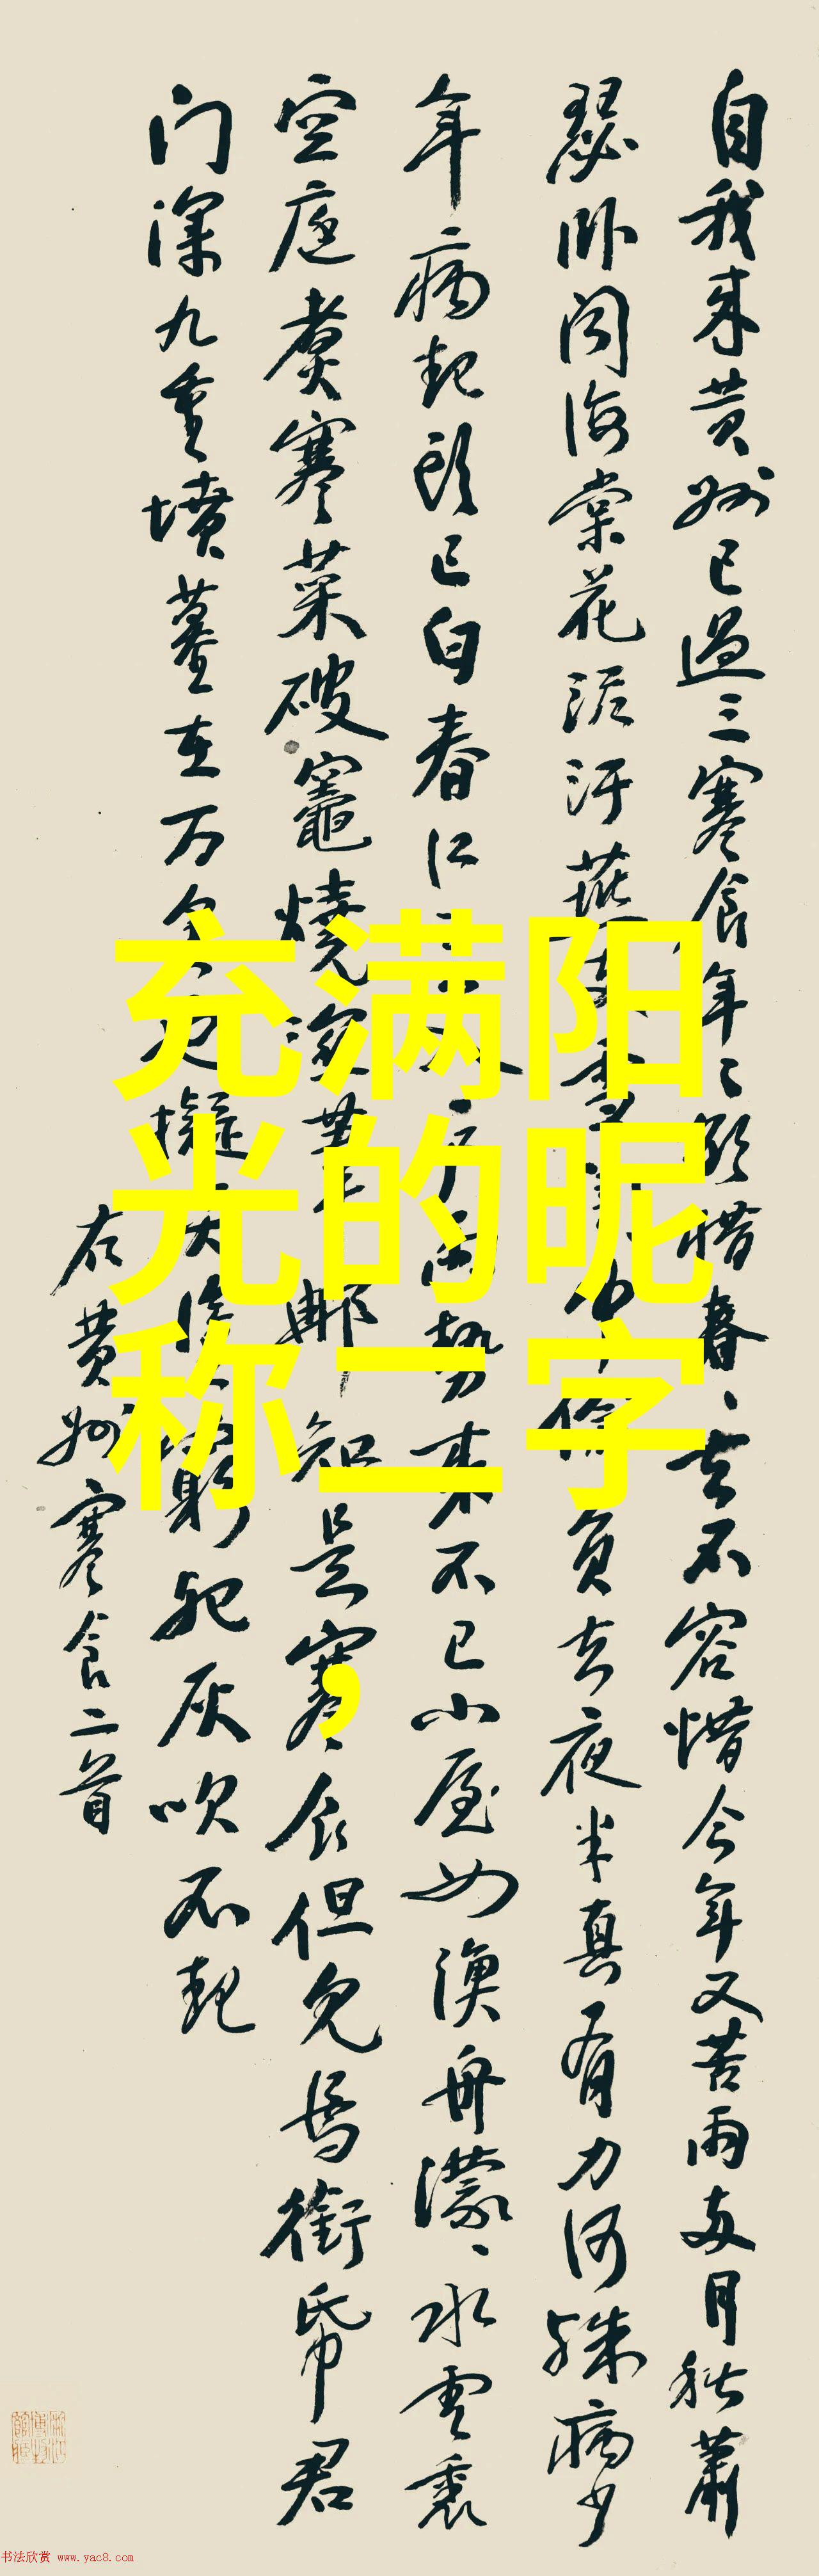 自我来黄州已過三寒食年〻欲惜春〻去不容惜今年又苦雨两月秋蕭
瑟卧闻海棠花泥汙燕支雪闇中偷負去夜半真有力何殊病少
年病起頭已白春江欲入户雨势来不已小屋如渔舟濛〻水雲裏
空庖煮寒菜破竈燒濕葦那知是寒食但见烏銜帋君
门深九重墳墓在万里也擬哭途穷死灰吹不起
右黄州寒食二首
充满阳
光的昵
称二字
，
书法欣赏 www.yac8.com